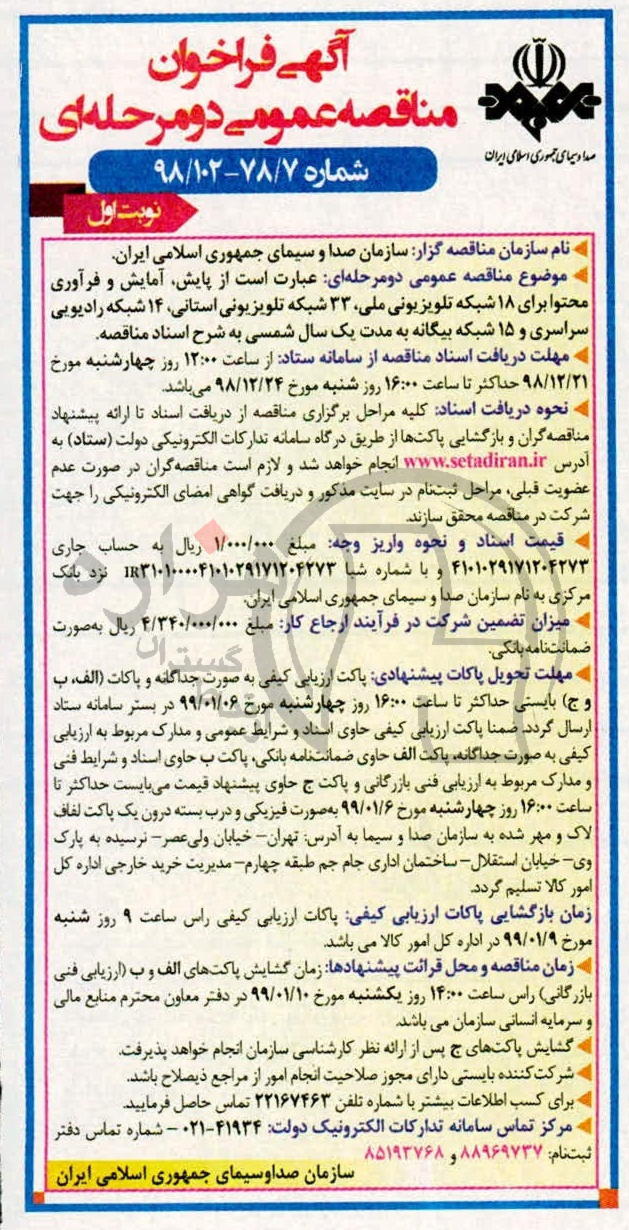 آگهی فراخوان
مناقصه عمومی دومرحله‌ای
صدا و سیمای جمهوری اسلامی ایران
شماره ۷۸/۷-۹۸/۱۰۲
نوبت اول
نام سازمان مناقصه گزار: سازمان صدا و سیمای جمهوری اسلامی ایران.
موضوع مناقصه عمومی دومرحله‌ای: عبارت است از پایش، آمایش و فرآوری
محتوا برای ۱۸ شبکه تلویزیونی ملی، ۳۳ شبکه تلویزیونی استانی، ۱۴ شبکه رادیویی
سراسری و ۱۵ شبکه بیگانه به مدت یک سال شمسی به شرح اسناد مناقصه.
مهلت دریافت اسناد مناقصه از سامانه ستاد: از ساعت ۱۲:۰۰ روز چهارشنبه مورخ
۹۸/۱۲/۲۱ حداکثر تا ساعت ۱۶:۰۰ روز شنبه مورخ ۹۸/۱۲/۲۴ می‌باشد.
نحوه دریافت اسناد: کلیه مراحل برگزاری مناقصه از دریافت اسناد تا ارائه پیشنهاد
مناقصه‌گران و بازگشایی پاکت‌ها از طریق درگاه سامانه تدارکات الکترونیکی دولت (ستاد) به
آدرس www.setadiran.ir انجام خواهد شد و لازم است مناقصه‌گران در صورت عدم
عضویت قبلی، مراحل ثبت‌نام در سایت مذکور و دریافت گواهی امضای الکترونیکی را جهت
شرکت در مناقصه محقق سازند.
قیمت اسناد و نحوه واریز وجه: مبلغ ۱/۰۰۰/۰۰۰ ریال به حساب جاری
۴۱۰۱۰۲۹۱۷۱۲۰۴۲۷۳ و با شماره شبا IR۳۱۰۱۰۰۰۰۴۱۰۱۰۲۹۱۷۱۲۰۴۲۷۳ نزد بانک
مرکزی به نام سازمان صدا و سیمای جمهوری اسلامی ایران.
میزان تضمین شرکت در فرآیند ارجاع کار: مبلغ ۴/۳۴۰/۰۰۰/۰۰۰ ریال به‌صورت
ضمانت‌نامه بانکی.
مهلت تحویل پاکات پیشنهادی: پاکت ارزیابی کیفی به صورت جداگانه و پاکات (الف، ب
و ج) بایستی حداکثر تا ساعت ۱۶:۰۰ روز چهارشنبه مورخ ۹۹/۰۱/۰۶ در بستر سامانه ستاد
ارسال گردد. ضمنا پاکت ارزیابی کیفی حاوی اسناد و شرایط عمومی و مدارک مربوط به ارزیابی
کیفی به صورت جداگانه، پاکت الف حاوی ضمانت‌نامه بانکی، پاکت ب حاوی اسناد و شرایط فنی
و مدارک مربوط به ارزیابی فنی بازرگانی و پاکت ج حاوی پیشنهاد قیمت می‌بایست حداکثر تا
ساعت ۱۶:۰۰ روز چهارشنبه مورخ ۹۹/۰۱/۶ به‌صورت فیزیکی و درب بسته درون یک پاکت لفاف
لاک و مهر شده به سازمان صدا و سیما به آدرس: تهران– خیابان ولی‌عصر– نرسیده به پارک
وی– خیابان استقلال– ساختمان اداری جام جم طبقه چهارم– مدیریت خرید خارجی اداره کل
امور کالا تسلیم گردد.
زمان بازگشایی پاکات ارزیابی کیفی: پاکات ارزیابی کیفی راس ساعت ۹ روز شنبه
مورخ ۹۹/۰۱/۹ در اداره کل امور کالا می باشد.
زمان مناقصه و محل قرائت پیشنهادها: زمان گشایش پاکت‌های الف و ب (ارزیابی فنی
بازرگانی) راس ساعت ۱۴:۰۰ روز یکشنبه مورخ ۹۹/۰۱/۱۰ در دفتر معاون محترم منابع مالی
و سرمایه انسانی سازمان می باشد.
گشایش پاکت‌های ج پس از ارائه نظر کارشناسی سازمان انجام خواهد پذیرفت.
شرکت‌کننده بایستی دارای مجوز صلاحیت انجام امور از مراجع ذیصلاح باشد.
برای کسب اطلاعات بیشتر با شماره تلفن ۲۲۱۶۷۴۶۳ تماس حاصل فرمایید.
مرکز تماس سامانه تدارکات الکترونیک دولت: ۴۱۹۳۴-۰۲۱ – شماره تماس دفتر
ثبت‌نام: ۸۸۹۶۹۷۳۷ و ۸۵۱۹۳۷۶۸
سازمان صداوسیمای جمهوری اسلامی ایران
هزاره
گستران